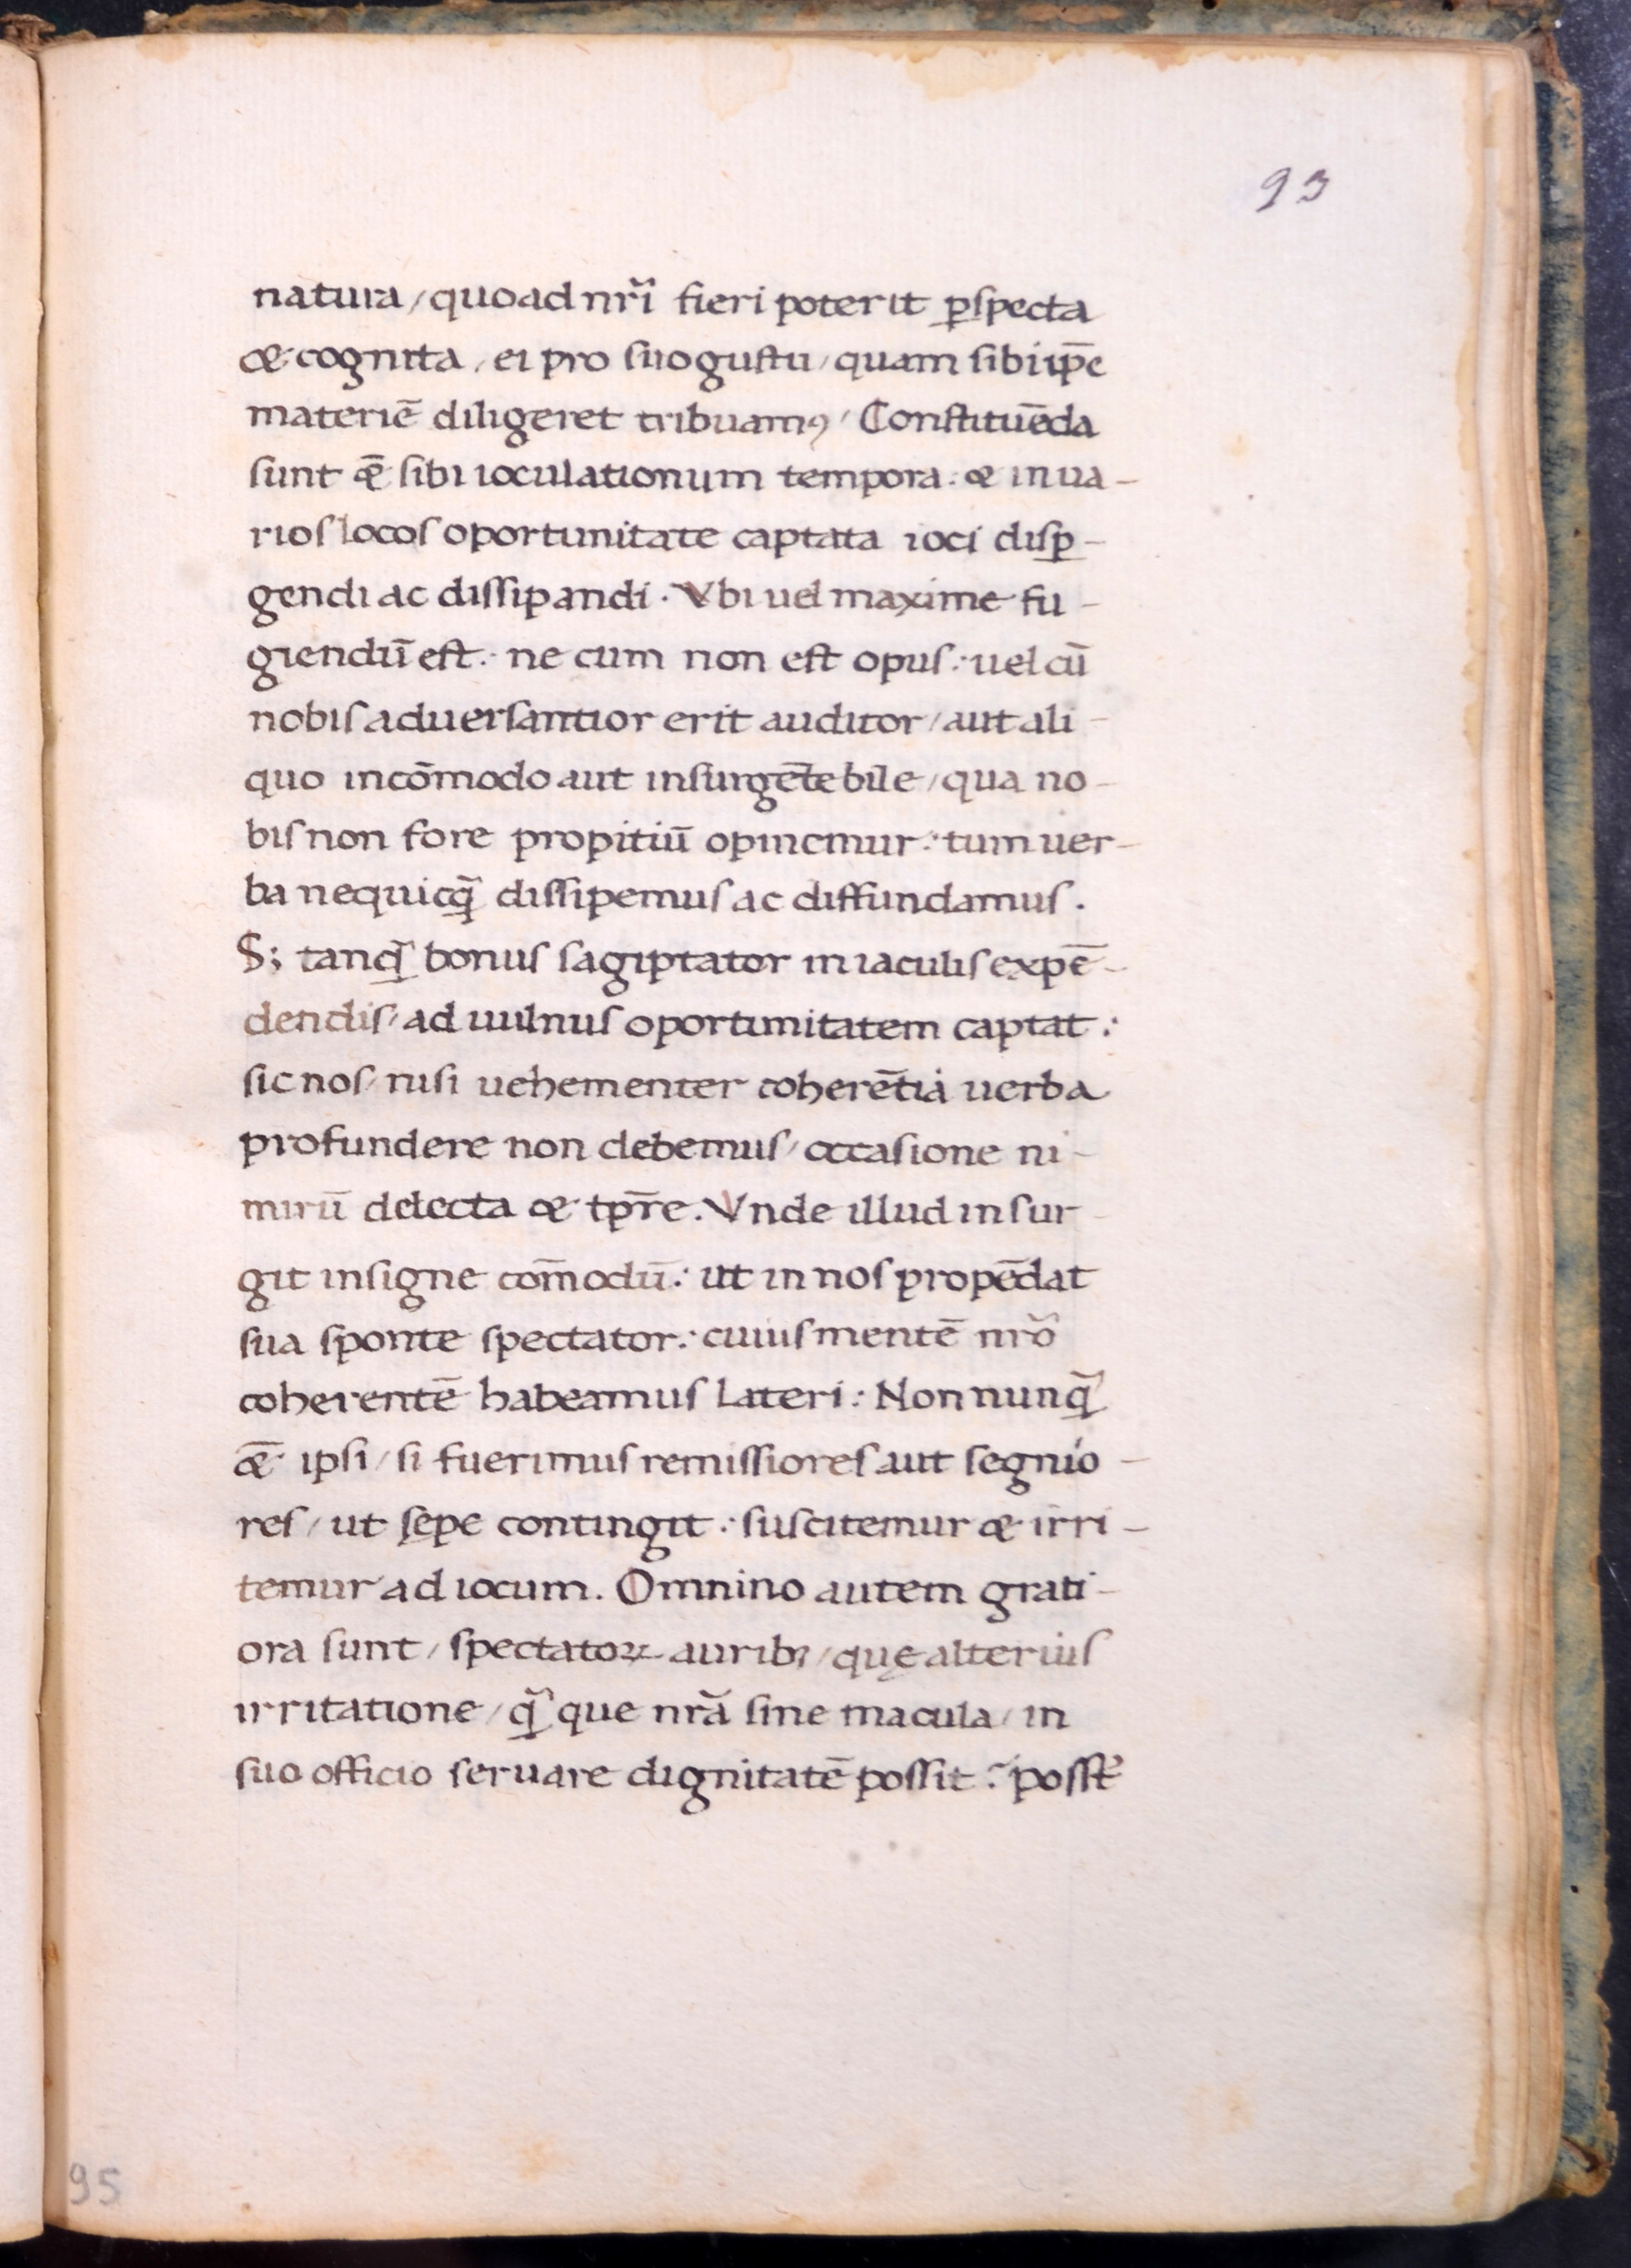 93
natura / quoad nr̃i fieri poterit ꝑspecta
& cognita / ei pro suo gustu / quam sibi ip̄e
materiē diligeret tribuamꝰ / Constituēda
sunt &̄ sibi ioculationum tempora : & in ua-
rios locos oportunitate captata ioci disꝑ-
gendi ac dissipandi . Vbi uel maxime fu-
giendū est : ne cum non est opus : uel cū
nobis aduersantior erit auditor / aut ali-
quo incōmodo aut insurgēte bile / qua no-
bis non fore propitiū opinemur : tum uer-
ba nequicq̃ dissipemus ac diffundamus .
S; tanq̃ bonus sagiptator in iaculis expē-
dendis / ad uulnus oportunitatem captat :
sic nos / nisi uehementer coherētia uerba
profundere non debemus / occasione ni-
mirū delecta & tp̄re . Vnde illud insur-
git insigne com̄odū : ut in nos propēdat
sua sponte spectator : cuius mentē nr̃o
coherentē habeamus lateri : Non nunq̃
&̄ ipsi / si fuerimus remissiores aut segnio-
res / ut sępe contingit : suscitemur & irri-
temur ad iocum . Omnino autem grati-
ora sunt / spectatoꝝ auribꝫ / quę alterius
irritatione / q̃ que nr̃a sine macula / in
suo officio seruare dignitatē possit : posst̃
95